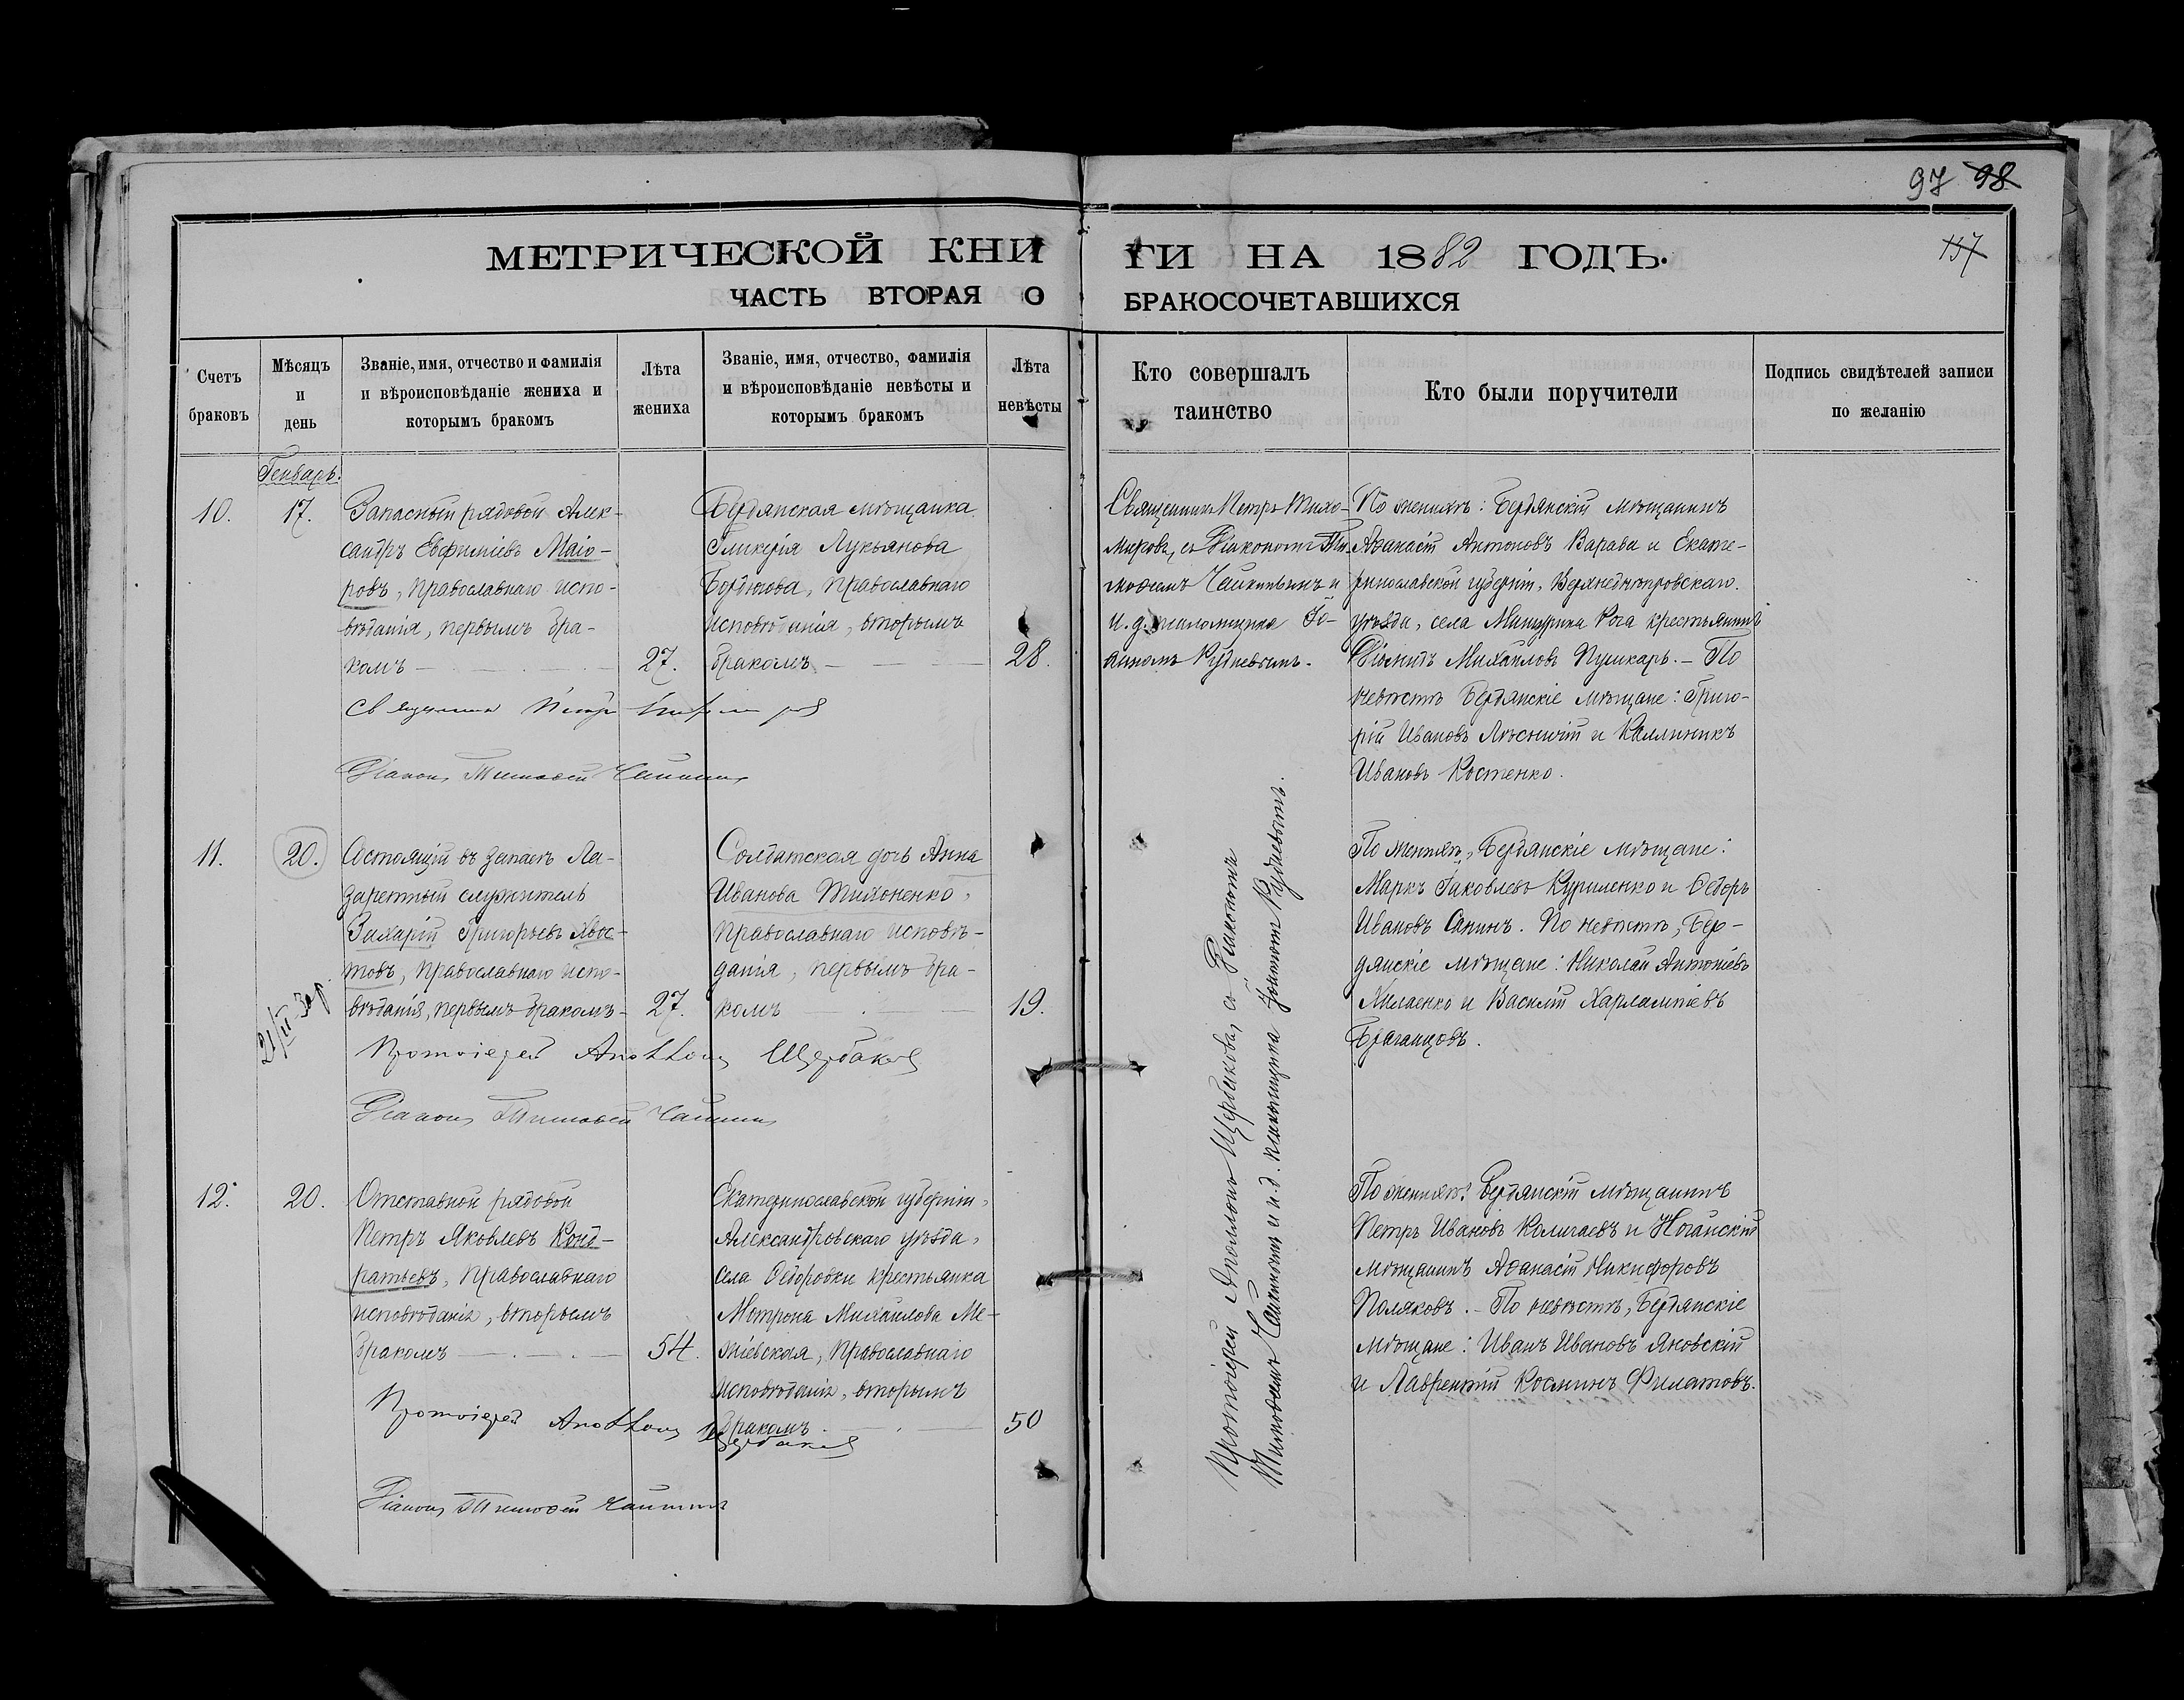 97 98
157
МЕТРИЧЕСКОЙ КНИ ГИ НА 1882 ГОДЪ.
ЧАСТЬ ВТОРАЯ О БРАКОСОЧЕТАВШИХСЯ
Счетъ
браковъ
Мѣсяцъ
и
день
Званіе, имя, отчество и фамилія
и вѣроисповѣданіе жениха и
которымъ бракомъ
Лѣта
жениха
Званіе, имя, отчество, фамилія
и вѣроисповѣданіе невѣсты и
которымъ бракомъ
Лѣта
невѣсты
Кто совершалъ
таинство
Кто были поручители
Подпись свидѣтелей записи
по желанію
Генварь.
10.
17.
Запасный рядовой Алек-
сандръ Евфиміевъ Маіо-
ровъ, Православнаго испо-
вѣданія, первымъ бра-
комъ
27.
Бердянская мѣщанка
Гликерія Лукьянова
Бордюгова, Православнаго
исповѣданія, вторымъ
бракомъ
28.
Священникъ Петръ Тихо-
мировъ, съ Діакономъ Ти-
мофеемъ Чайкинымъ и
и. д. псаломщика Іо-
анномъ Рудневымъ.
По женихѣ: Бердянскій мѣщанинъ
Афанасій Антоновъ Варава и Екате-
ринославской губерніи, Верхнеднѣпровскаго
уѣзда, села Мишурина Рога крестьянинъ
Діомидъ Михайловъ Пушкарь. – По
невѣстѣ Бердянскіе мѣщане: Григо-
рій Ивановъ Лѣсничій и Каллиникъ
Ивановъ Костенко.
Священникъ Петръ Тихомировъ
Діаконъ Тимофей Чайкинъ
11.
20.
Состоящій въ запасѣ Ла-
заретный служитель
Захарій Григорьевъ Хвос-
товъ, Православнаго испо-
вѣданія, первымъ бракомъ
27.
Солдатская дочь Анна
Иванова Тихоненко,
Православнаго исповѣ-
данія, первымъ бра-
комъ
19.
Протоіерей Аполлонъ Щербаковъ, съ Діакономъ
Тимофеемъ Чайкинымъ и и. д. псаломщика Іоанномъ Рудневымъ.
По женихѣ, Бердянскіе мѣщане:
Маркъ Іаковлевъ Куриленко и Ѳедоръ
Ивановъ Санинъ. По невѣстѣ, Бер-
дянскіе мѣщане: Николай Антоніевъ
и Василій Харлампіевъ
Браганцовъ.
21/II
Протоіерей Аполлонъ Щербаковъ
Діаконъ Тимофей Чайкинъ
12.
20.
Отставной рядовой
Петръ Яковлевъ Конд-
ратьевъ, Православнаго
исповѣданія, вторымъ
бракомъ
54.
Екатеринославской губерніи,
Александровскаго уѣзда,
села Ѳедоровки крестьянка
Мотрона Михайлова Ме-
жіевская, Православнаго
исповѣданія, вторымъ
бракомъ
50
По женихѣ: Бердянскій мѣщанинъ
Петръ Ивановъ Каличаевъ и Ногайскій
мѣщанинъ Афанасій Никифоровъ
Поляковъ. – По невѣстѣ, Бердянскіе
мѣщане: Иванъ Ивановъ Яновскій
и Лаврентій Косминъ Филатовъ.
Протоіерей Аполлонъ Щербаковъ
Діаконъ Тимофей Чайкинъ